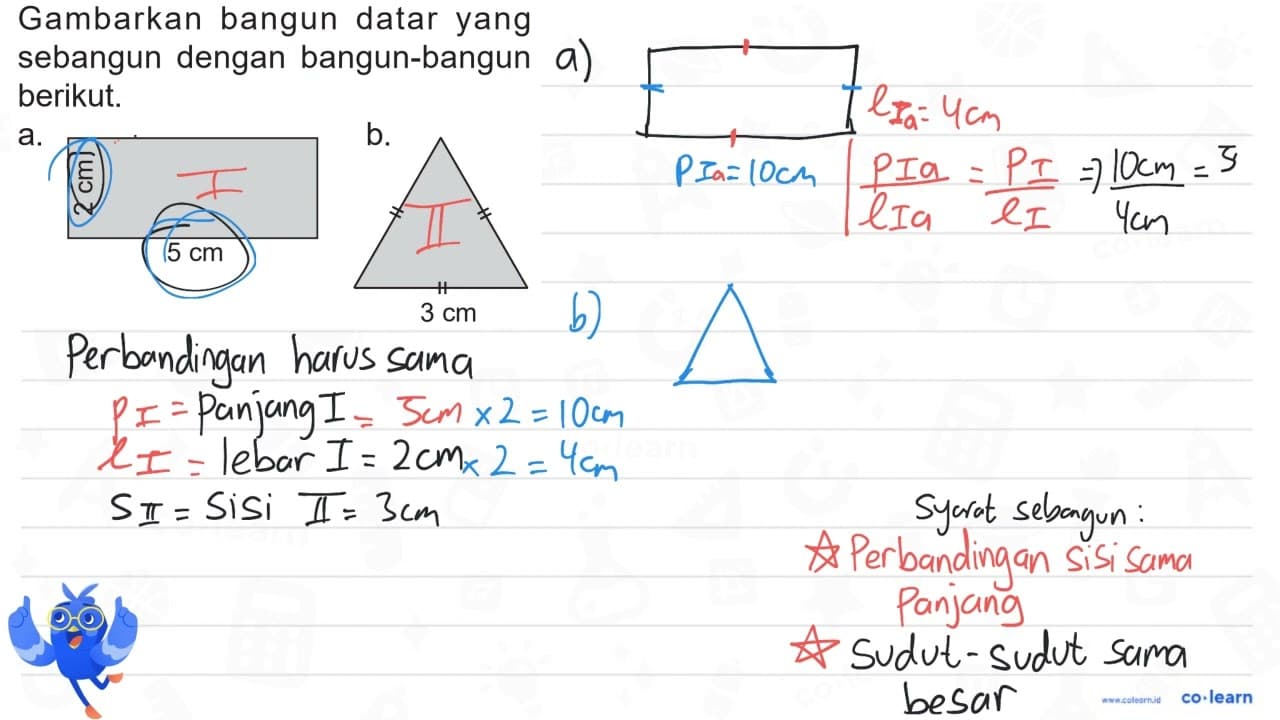 Gambarkan bangun datar yang
sebangun dengan bangun-bangun
berikut.
a.
2 cm
I
5 cm
b.
II
3 cm
a)
lIa = 4cm
PIa = 10cm
PIa/lIa = PI/lI => 10cm/4cm = 5
b)
Perbandingan harus sama
PI = Panjang I = 5cm x 2 = 10cm
lI = lebar I = 2cm x 2 = 4cm
SII = Sisi II = 3cm
Syarat sebangun:
☆ Perbandingan sisi sama
Panjang
☆ Sudut-sudut sama
besar
www.colearn.id
co·learn